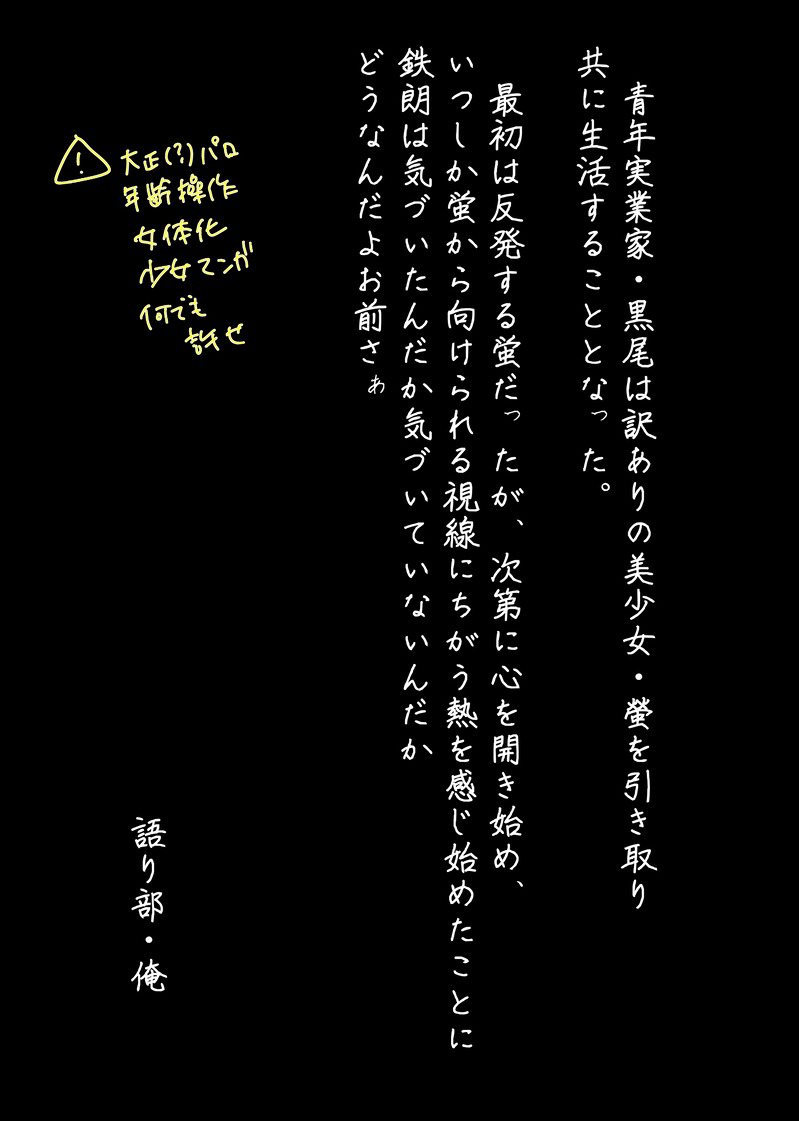 青年実業家・黒尾は訳ありの美少女・螢を引き取り
共に生活することとなった。
最初は反発する蛍だったが、次第に心を開き始め、
いつしか蛍から向けられる視線にちがう熱を感じ始めたことに
鉄朗は気づいたんだか気づいていないんだか
どうなんだよお前さぁ
語り部・俺
!
大正(?)パロ
年齢操作
女体化
少女マンガ
何でも
許せ